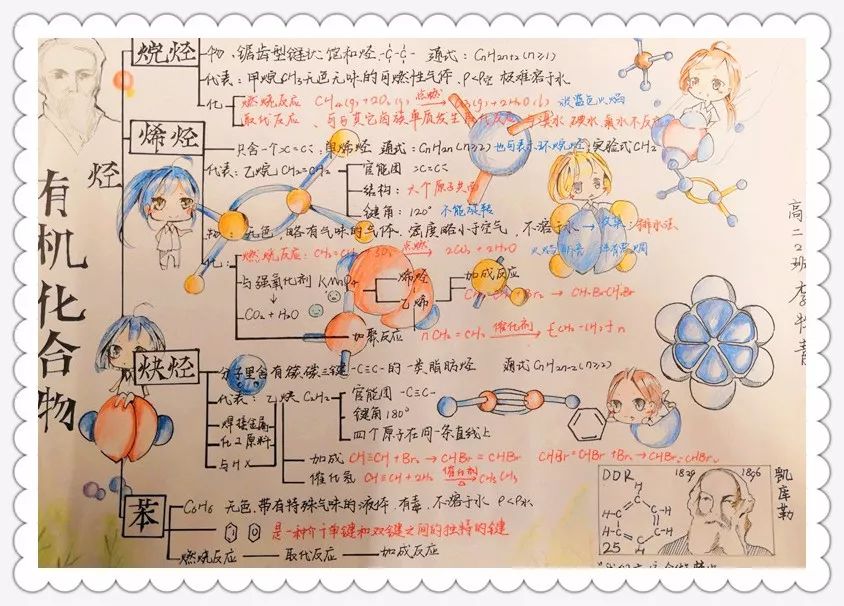 有机化合物
烃
烷烃
物、锯齿型链状 饱和烃 -C-C- 通式：CnH2n+2 (n≥1)
代表：甲烷 CH4 无色无味的可燃性气体、ρ<ρ空 极难溶于水
化
燃烧反应 CH4(g)+2O2(g) 点燃 2H2O(l) 淡蓝色火焰
取代反应、
与溴水、碘水、氯水不反应
烯烃
只含一个 C=C 单烯烃 通式：CnH2n (n≥2) 也可表示环烷烃 实验式CH2
代表：乙烷 CH2=CH2
官能团 >C=C<
结构：六个原子共面
键角：120° 不能旋转
物 无色 略有气味的气体、密度略小于空气、不溶于水→收集：排水法
化：
燃烧反应：CH2=CH2+3O2 点燃 2CO2+2H2O
与强氧化剂 KMnO4
烯烃
乙烯
加成反应
Br2 → CH2BrCH2Br
CO2+H2O
加聚反应 nCH2=CH2 催化剂
炔烃
分子里含有碳碳三键 -C≡C- 的一类脂肪烃 通式 CnH2n-2 (n≥2)
代表：乙炔 C2H2
官能团 -C≡C-
键角 180°
四个原子在同一条直线上
焊接金属
化工原料
与HX
加成 CH≡CH+Br2→CHBr=CHBr CHBr=CHBr+Br2→CHBr2CHBr2
催化氢 CH≡CH+2H2 催化剂 △ CH3CH3
苯
C6H6 无色、带有特殊气味的液体、有毒、不溶于水 ρ<ρ水
是一种介于单键和双键之间的独特的键
燃烧反应 — 取代反应 — 加成反应
高二2班 李
DDR
1829 1896
H C
25
凯库勒